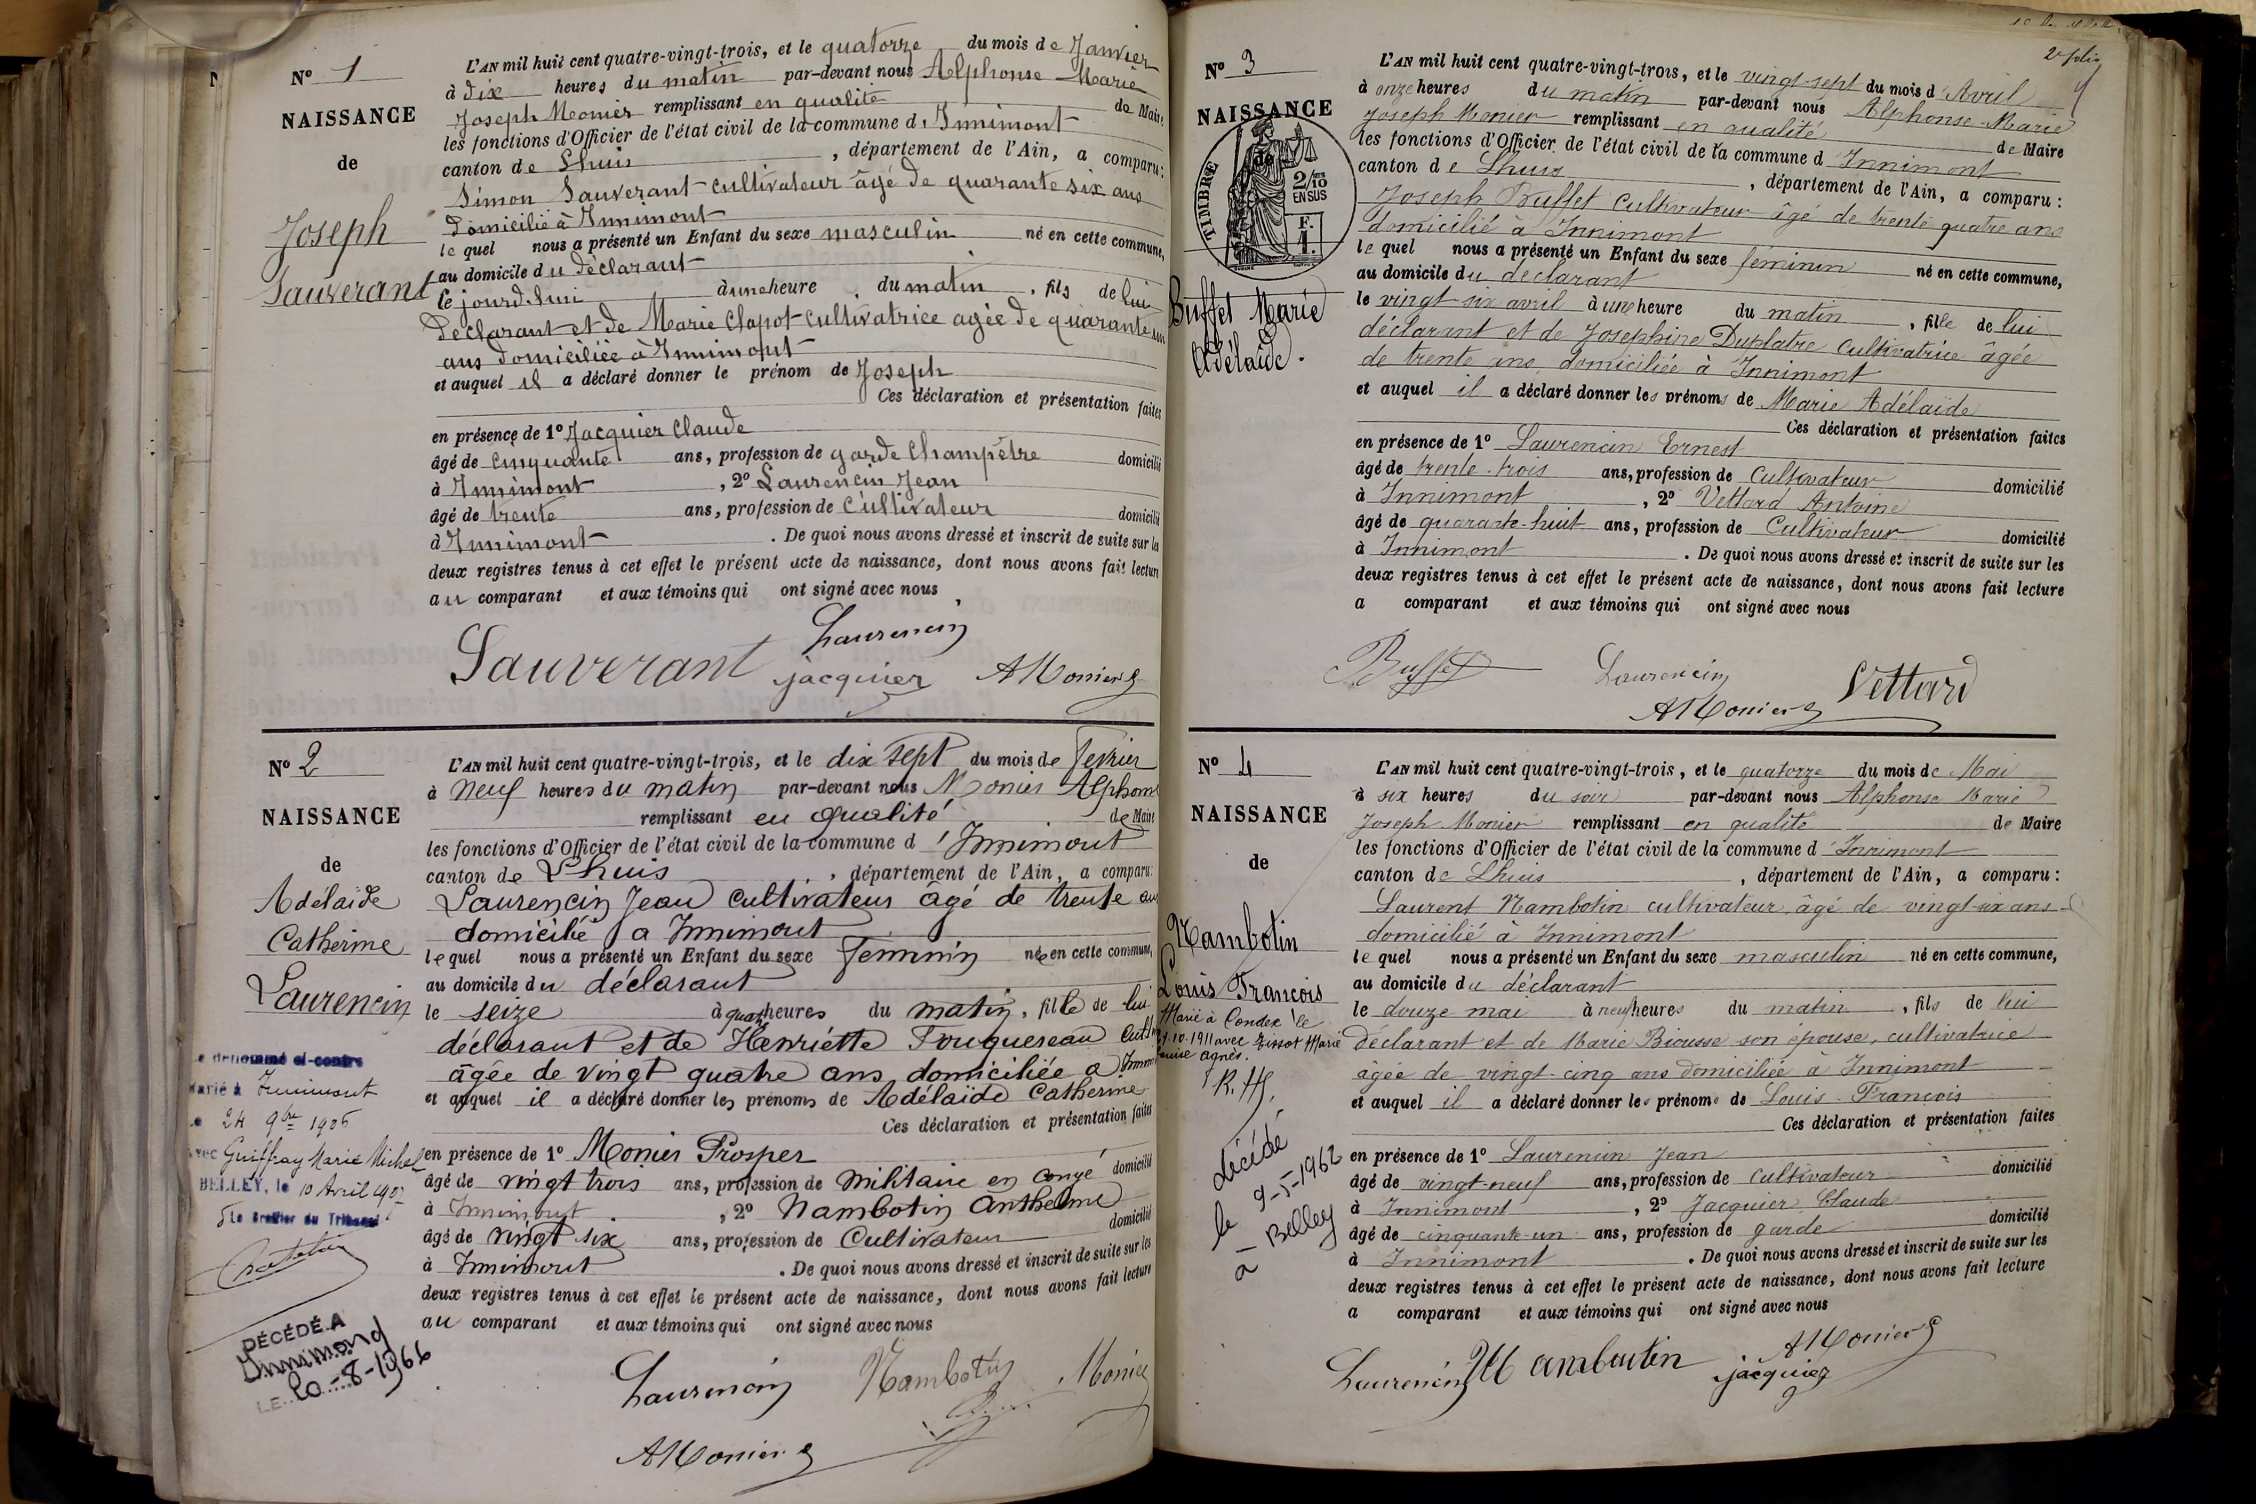 Nº 1
NAISSANCE
de
Joseph
Sauverant
L'AN mil huit cent quatre-vingt-trois, et le quatorze du mois de Janvier
à dix heures du matin par-devant nous Alphonse Marie
Joseph Monier remplissant en qualité de Maire
les fonctions d'Officier de l'état civil de la commune d'Innimont
canton de Lhuis, département de l'Ain, a comparu:
Simon Sauverant cultivateur âgé de quarante six ans
domicilié à Innimont
lequel nous a présenté un Enfant du sexe masculin né en cette commune,
au domicile du déclarant
le jourd'hui à une heure du matin, fils de lui
déclarant et de Marie Clapot cultivatrice agée de quarante un
ans domiciliée à Innimont
et auquel il a déclaré donner le prénom de Joseph
Ces déclaration et présentation faites
en présence de 1º Jacquier Claude
âgé de cinquante ans, profession de garde champêtre domicilié
à Innimont, 2º Laurencin Jean
âgé de trente ans, profession de cultivateur domicilié
à Innimont. De quoi nous avons dressé et inscrit de suite sur les
deux registres tenus à cet effet le présent acte de naissance, dont nous avons fait lecture
au comparant et aux témoins qui ont signé avec nous
Laurencin
Sauverant jacquier AMonier
Nº 2
NAISSANCE
de
Adélaïde
Catherine
Laurencin
Le dénommé ci-contre
Marié à Innimont
le 24 9bre 1906
avec Guiffray Marie Michel
BELLEY, le 10 Avril 1907
Le Greffier du Tribunal
DÉCÉDÉ A
Innimond
LE 20-8-1966
L'AN mil huit cent quatre-vingt-trois, et le dix sept du mois de fevrier
à neuf heures du matin par-devant nous Monier Alphonse
remplissant en qualité de Maire
les fonctions d'Officier de l'état civil de la commune d'Innimont
canton de Lhuis, département de l'Ain, a comparu:
Laurencin Jean cultivateur âgé de trente ans
domicilié a Innimont
lequel nous a présenté un Enfant du sexe féminin née en cette commune,
au domicile du déclarant
le seize à quatre heures du matin, fille de lui
déclarant et de Henriette Fouquereau cult
âgée de vingt quatre ans domiciliée a Innim
et auquel il a déclaré donner les prénoms de Adélaïde Catherine
Ces déclaration et présentation faites
en présence de 1º Monier Prosper
âgé de vingt trois ans, profession de militaire en congé domicilié
à Innimont, 2º Nambotin Anthelme
âgé de vingt six ans, profession de Cultivateur domicilié
à Innimont. De quoi nous avons dressé et inscrit de suite sur les
deux registres tenus à cet effet le présent acte de naissance, dont nous avons fait lecture
au comparant et aux témoins qui ont signé avec nous
Laurencin Nambotin Monier
AMonier
2e folio
Nº 3
NAISSANCE
de
TIMBRE
2/10 EN SUS
F. 1.
Buffet Marie
Adélaïde.
L'AN mil huit cent quatre-vingt-trois, et le vingt-sept du mois d'Avril
à onze heures du matin par-devant nous Alphonse-Marie
Joseph Monier remplissant en qualité de Maire
les fonctions d'Officier de l'état civil de la commune d'Innimont
canton de Lhuis, département de l'Ain, a comparu:
Joseph Buffet cultivateur âgé de trente quatre ans
domicilié à Innimont
lequel nous a présenté un Enfant du sexe féminin né en cette commune,
au domicile du déclarant
le vingt-six avril à une heure du matin, fille de lui
déclarant et de Josephine Duplatre cultivatrice âgée
de trente ans, domiciliée à Innimont
et auquel il a déclaré donner les prénoms de Marie Adélaïde
Ces déclaration et présentation faites
en présence de 1º Laurencin Ernest
âgé de trente-trois ans, profession de cultivateur domicilié
à Innimont, 2º Vettard Antoine
âgé de quarante-huit ans, profession de Cultivateur domicilié
à Innimont. De quoi nous avons dressé et inscrit de suite sur les
deux registres tenus à cet effet le présent acte de naissance, dont nous avons fait lecture
a comparant et aux témoins qui ont signé avec nous
Buffet Laurencin Vettard
AMonier
Nº 4
NAISSANCE
de
Nambotin
Louis François
Marié à Condex le
21.10.1911 avec Tissot Marie
Louise Agnès.
R.H.
décédé
le 9-5-1962
à Belley
L'AN mil huit cent quatre-vingt-trois, et le quatorze du mois de Mai
à six heures du soir par-devant nous Alphonse Marie
Joseph Monier remplissant en qualité de Maire
les fonctions d'Officier de l'état civil de la commune d'Innimont
canton de Lhuis, département de l'Ain, a comparu:
Laurent Nambotin cultivateur, âgé de vingt-six ans
domicilié à Innimont
lequel nous a présenté un Enfant du sexe masculin né en cette commune,
au domicile du déclarant
le douze mai à neuf heures du matin, fils de lui
déclarant et de Marie Biousse son épouse, cultivatrice
âgée de vingt-cinq ans domiciliée à Innimont
et auquel il a déclaré donner les prénoms de Louis-François
Ces déclaration et présentation faites
en présence de 1º Laurencin Jean
âgé de vingt-neuf ans, profession de cultivateur domicilié
à Innimont, 2º Jacquier Claude
âgé de cinquante-un ans, profession de garde domicilié
à Innimont. De quoi nous avons dressé et inscrit de suite sur les
deux registres tenus à cet effet le présent acte de naissance, dont nous avons fait lecture
a comparant et aux témoins qui ont signé avec nous
Laurencin Nambotin jacquier AMonier